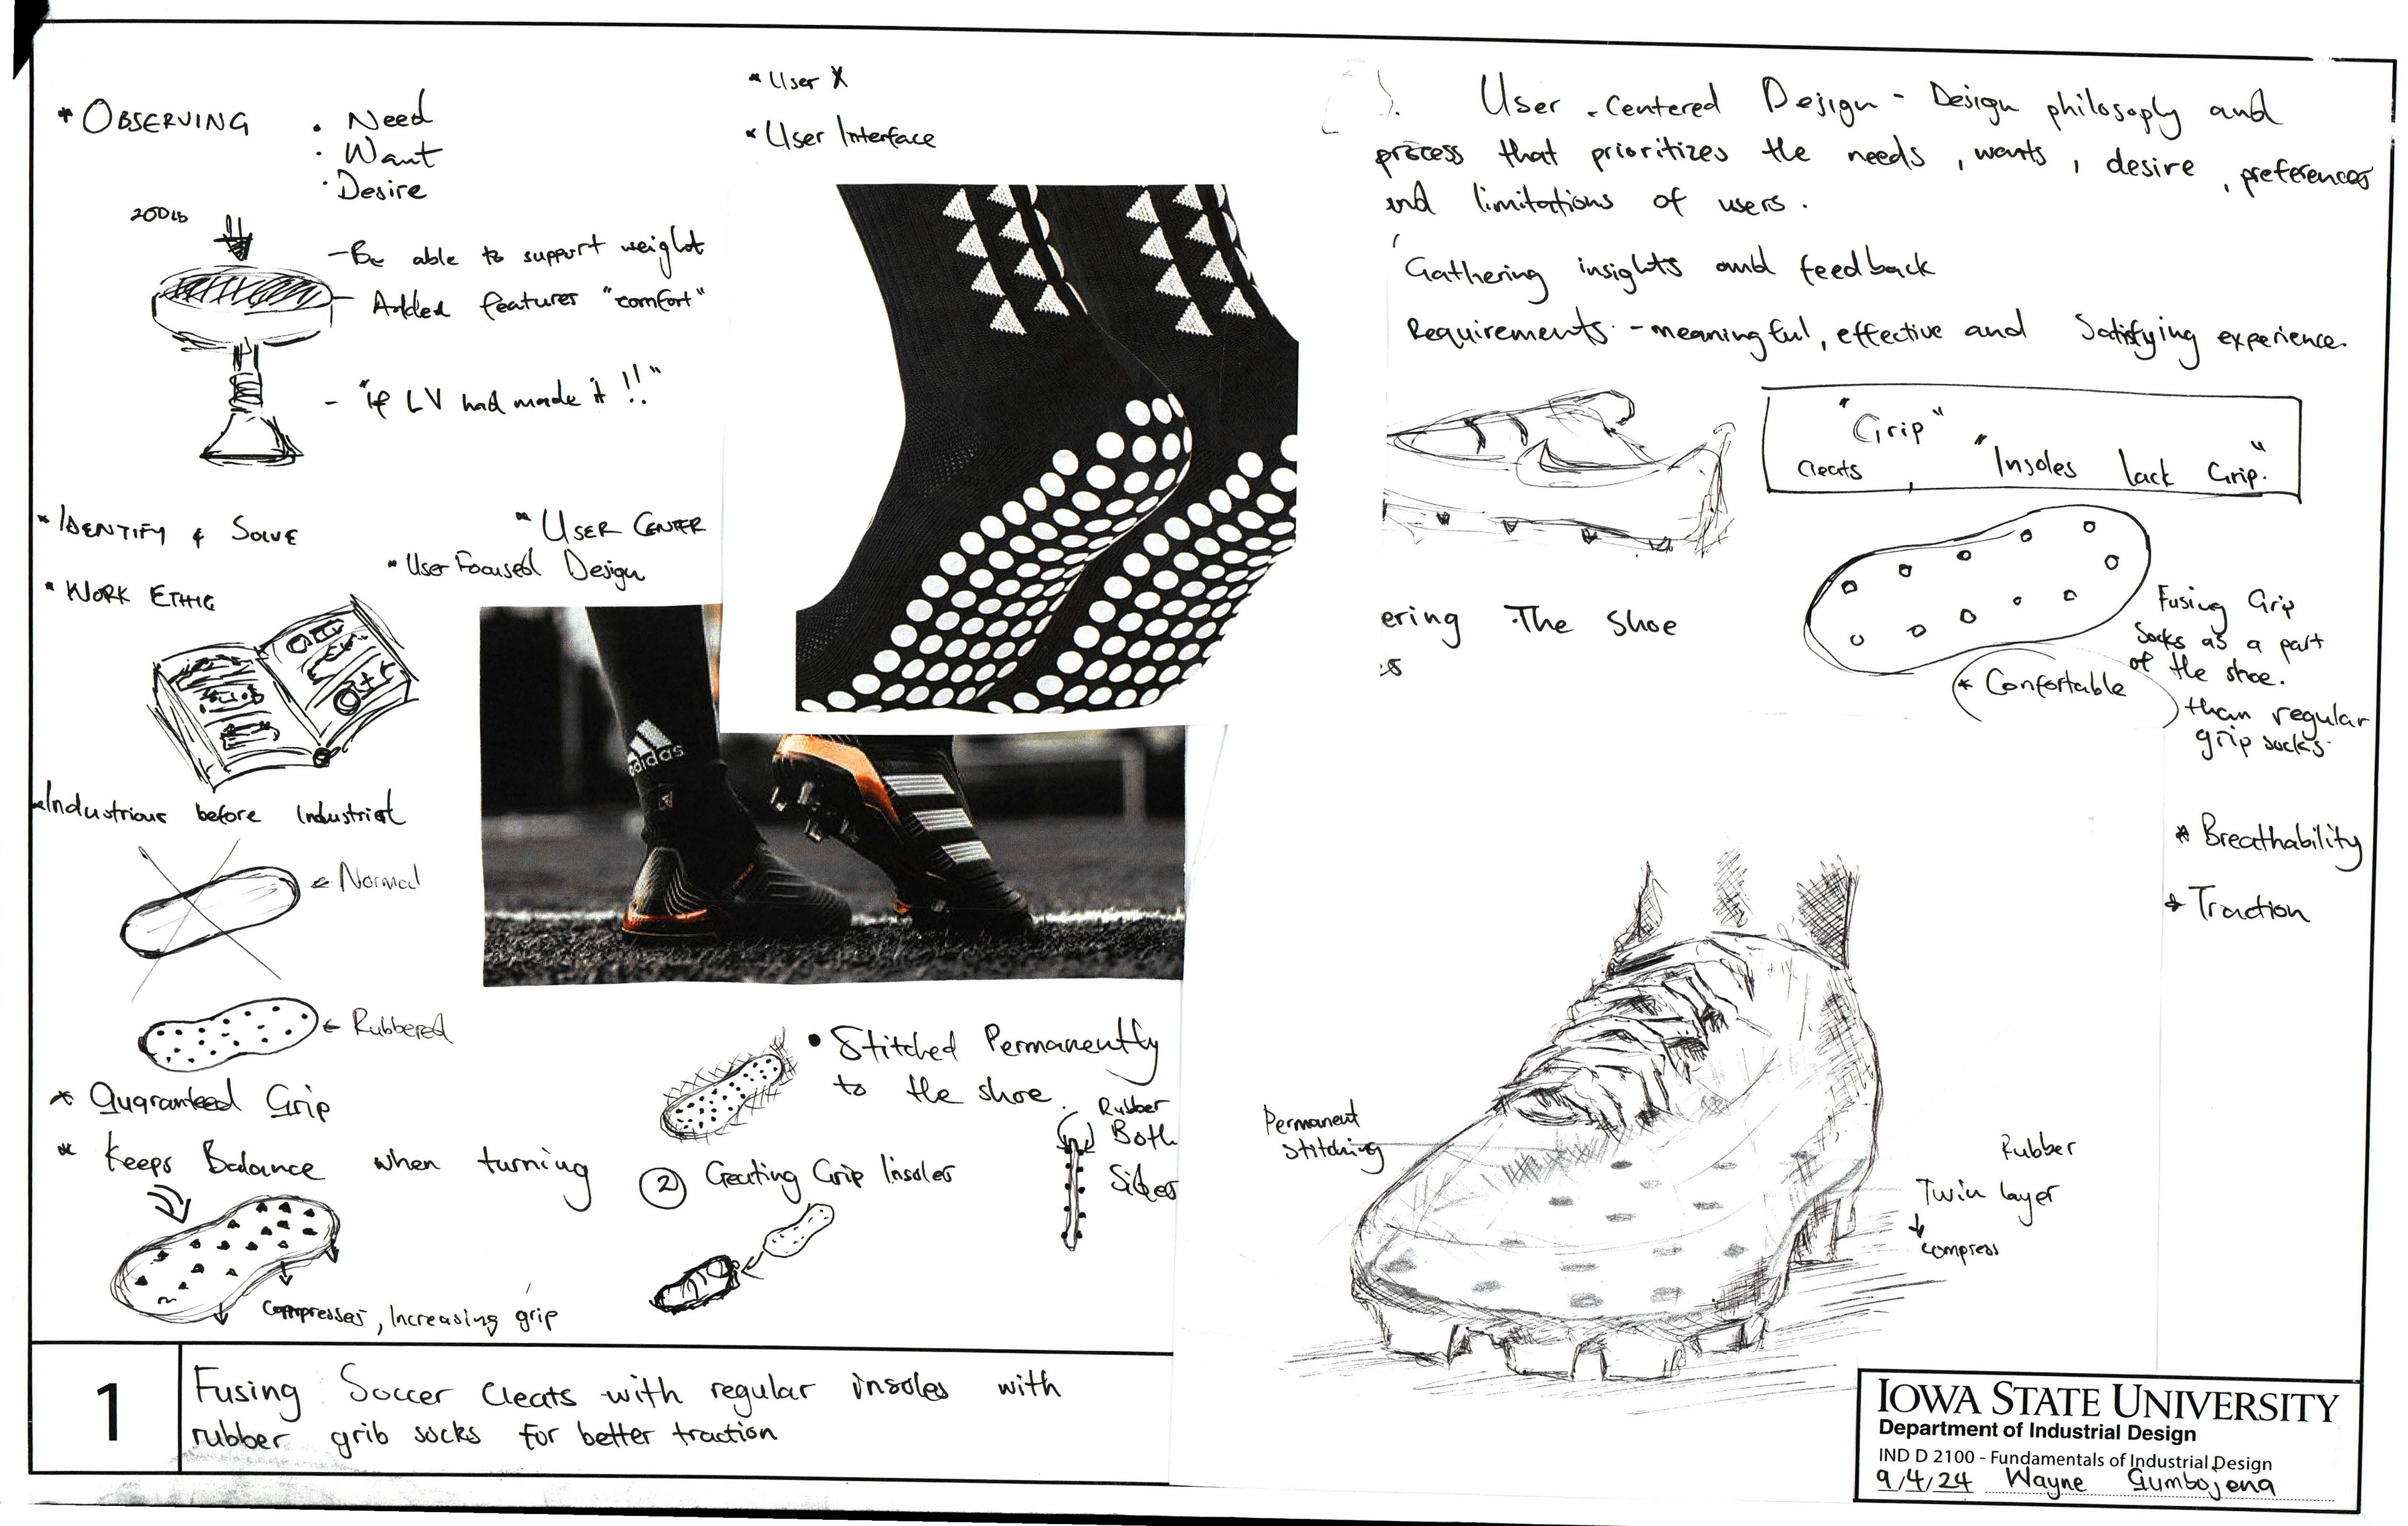 * OBSERVING
• Need
• Want
• Desire
200 lb
- Be able to support weight
- Added features "comfort"
- "if LV had made it !!"
* IDENTIFY & SOLVE
* USER CENTER
* User Focused Design
* WORK ETHIC
Industrious before Industrial
Normal
Rubbered
* Guaranteed Grip
* Keeps Balance when turning
compresses, Increasing grip
* User X
* User Interface
adidas
• Stitched Permanently
to the shoe.
Rubber
Both
Sides
2 Creating Grip Insoles
User-Centered Design - Design philosoply and
process that prioritizes the needs, wants, desire, preferences
and limitations of users.
Gathering insights and feedback
Requirements - meaningful, effective and Satisfying experience.
"Grip"
Cleats
"Insoles lack Grip."
ering The shoe
Fusing Grip
Socks as a part
of the shoe.
* Confortable
than regular
grip socks.
* Breathability
* Traction
Permanent
Stitching
Rubber
Twin layer
compress
1
Fusing Soccer Cleats with regular insoles with
rubber grib socks for better traction
IOWA STATE UNIVERSITY
Department of Industrial Design
IND D 2100 - Fundamentals of Industrial Design
9/4/24 Wayne Gumbojena